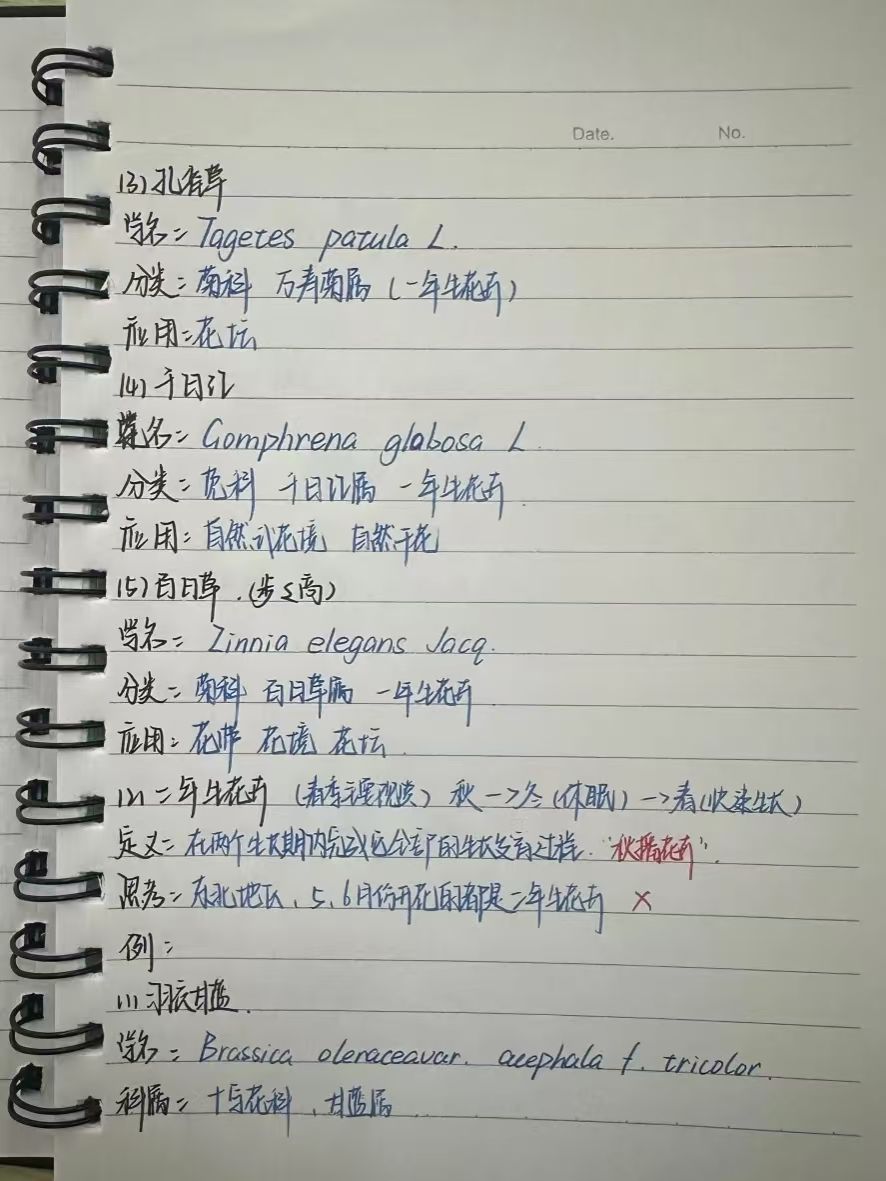 Date. No.
(3) 孔雀草
学名: Tagetes patula L.
分类: 菊科 万寿菊属 (一年生花卉)
应用: 花坛
(4) 千日红
学名: Gomphrena globosa L.
分类: 苋科 千日红属 一年生花卉
应用: 自然式花境 自然干花
(5) 百日草. (步步高)
学名: Zinnia elegans Jacq.
分类: 菊科 百日草属 一年生花卉
应用: 花带 花境 花坛.
(2) 二年生花卉 (春季主要观赏) 秋→冬 (休眠) →春 (快速生长)
定义: 在两个生长期内完成全部的生长发育过程. "秋播花卉".
思考: 东北地区、5、6月份开花的都是二年生花卉 ×
例:
(1) 羽衣甘蓝.
学名: Brassica oleraceavar. acephala f. tricolor.
科属: 十字花科、甘蓝属